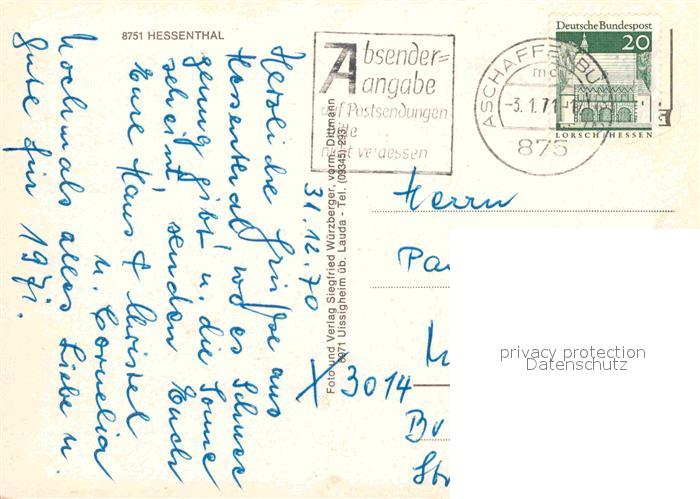 8751 HESSENTHAL
31.12.70
Herzliche Grüße aus
Hessenthal, wo es Schnee
genug gibt u. die Sonne
scheint, senden Euch
Eure Hans & Christel
u. Cornelia
Nochmals alles Liebe u.
Gute für 1971.
Foto und Verlag Siegfried Würzberger, vorm. Dittmann
6971 Uissigheim üb. Lauda - Tel. (09345) 293
Absender=
angabe
auf Postsendungen
bitte
nicht vergessen
ASCHAFFENBU
-3.1.71
875
Deutsche Bundespost
20
LORSCH HESSEN
Herrn
Pa
X 3014
Str
privacy protection
Datenschutz